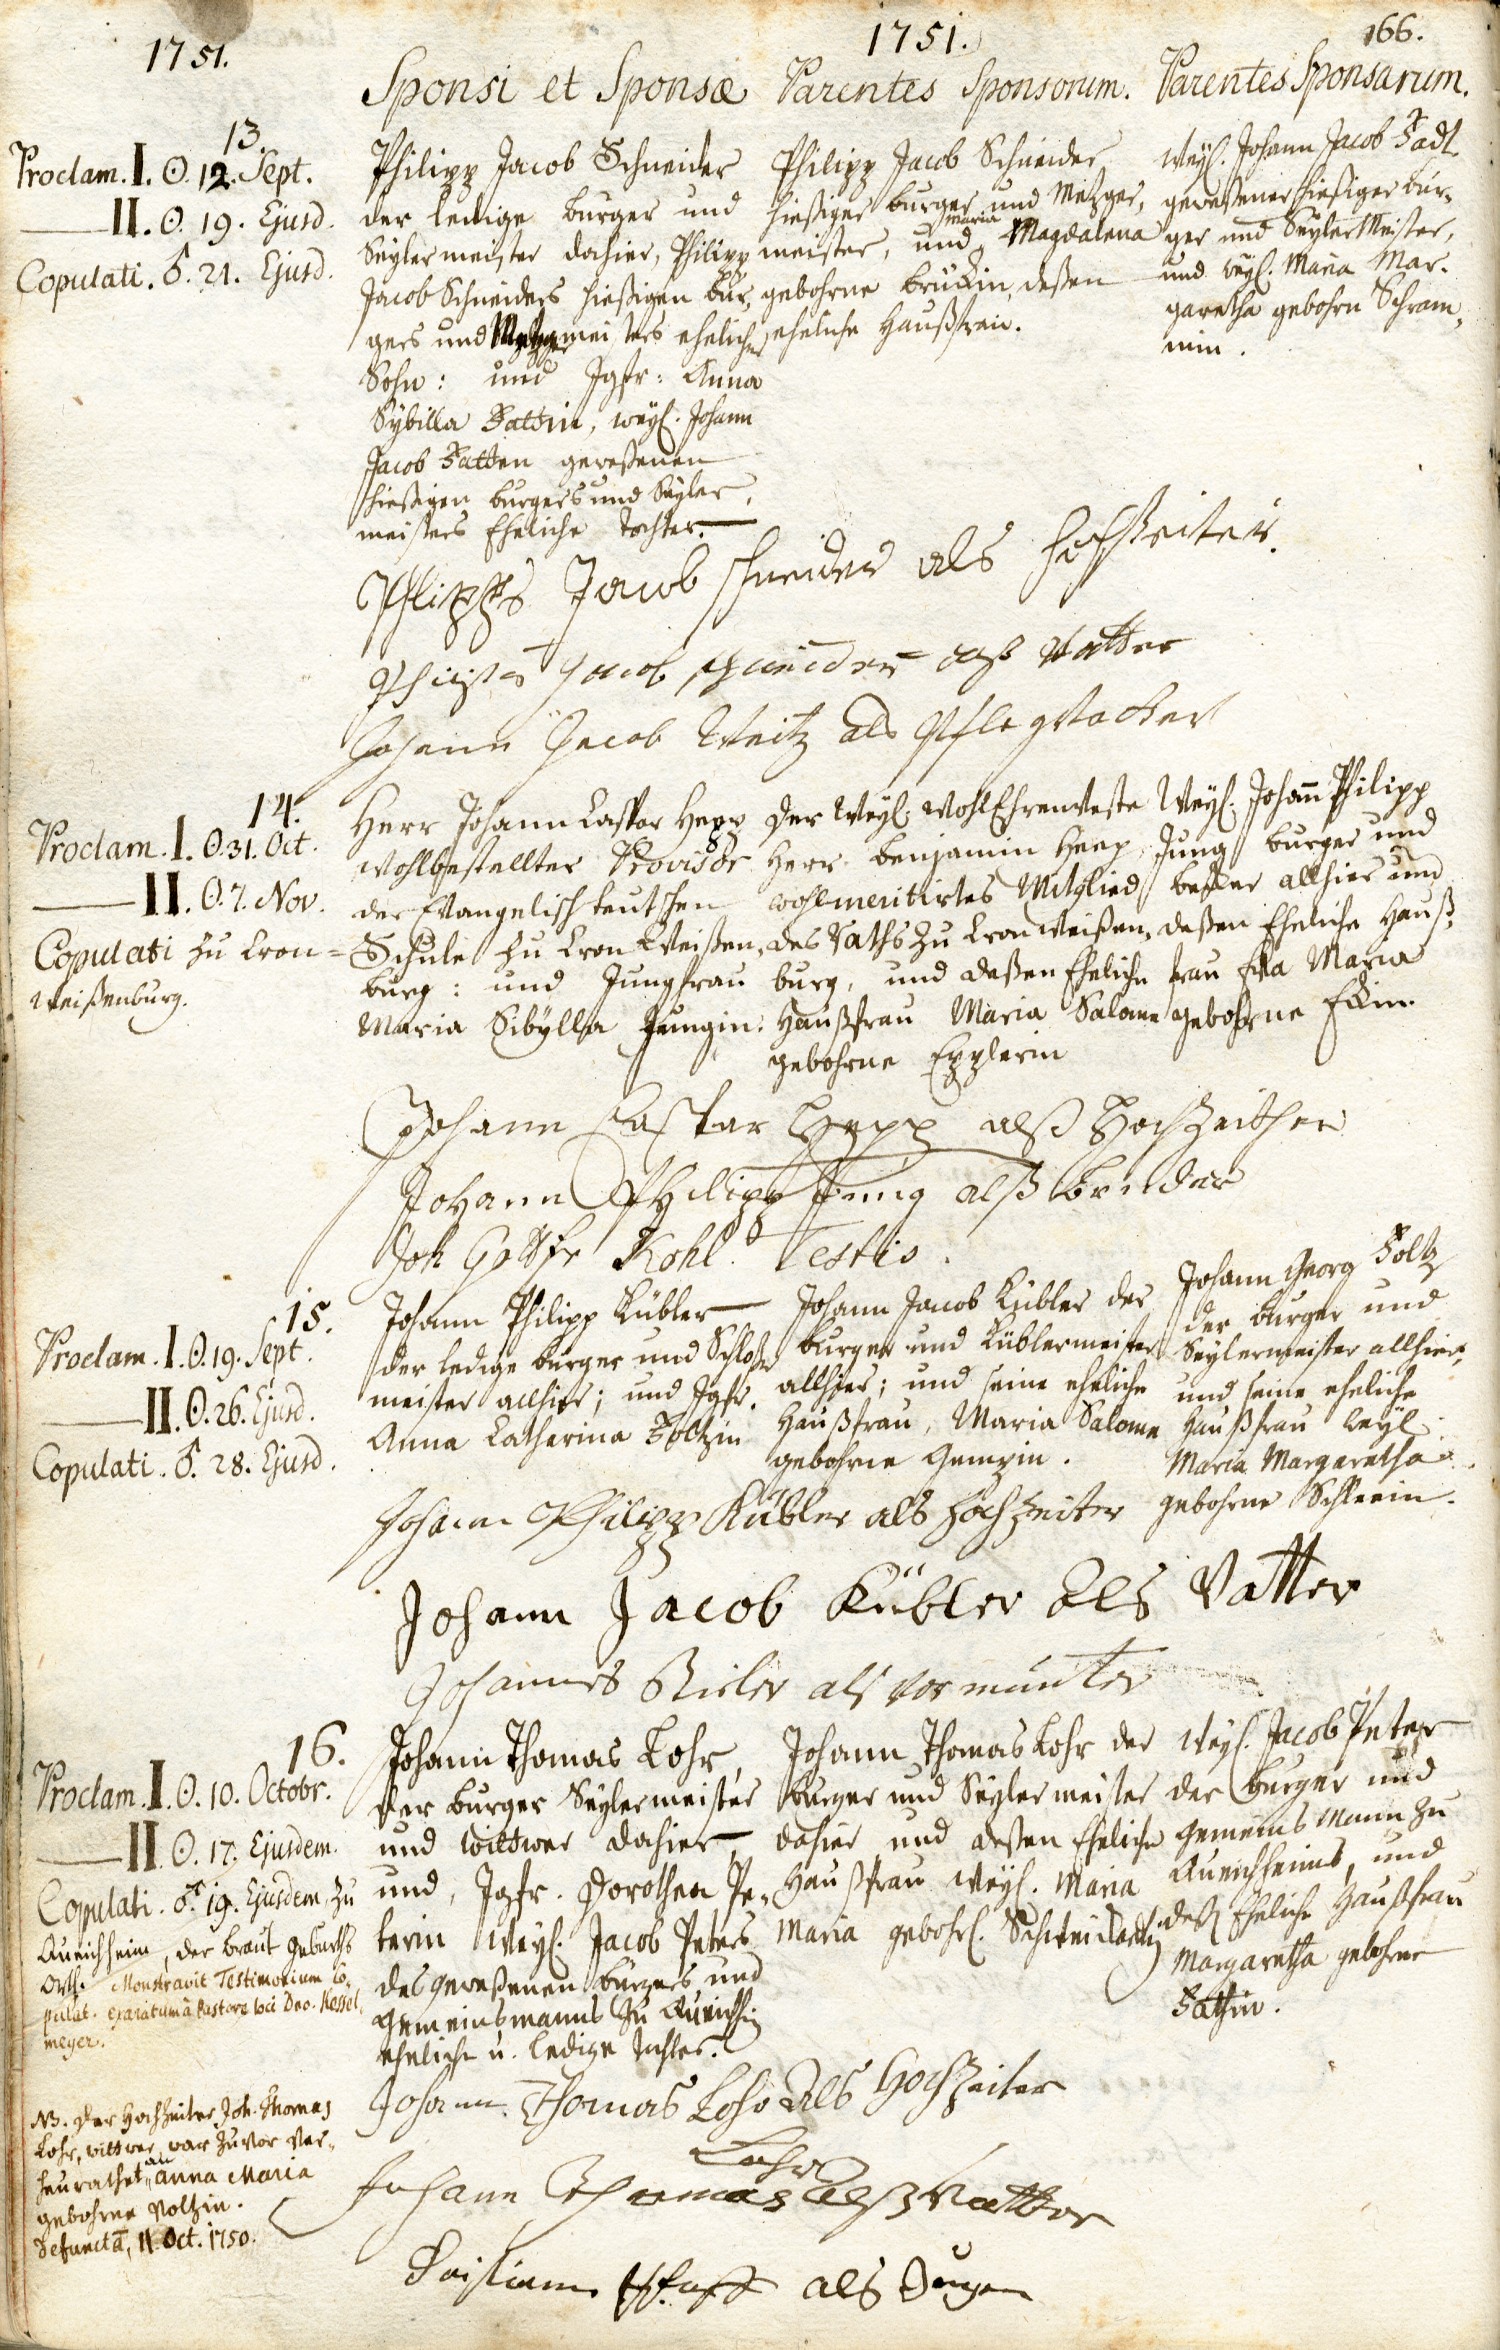 1751.
1751.
166.
Sponsi et Sponsæ
Parentes Sponsorum.
Parentes Sponsarum.
13.
Proclam. I. ʘ. 12. Sept.
II. ʘ. 19. Ejusd.
Copulati. ♂. 21. Ejusd.
Philipp Jacob Schneider
der ledige burger und
Seylermeister dahier, Philipp
Jacob Schneiders hießigen bur-
gers und Metzgermeisters ehelicher
Sohn: und Jgfr: Anna
Sybilla Fattin, weyl. Johann
Jacob Fatten geweßenen
hießigen burgers und Seyler-
meisters Eheliche Tochter.
Philipp Jacob Schneider
hießiger burger und Metzger-
meister, und Maria Magdalena
gebohrne brückin, deßen
eheliche Haußfrau.
Weyl. Johann Jacob Fadt
geweßener hießiger bur-
ger und Seyler Meister,
und weyl. Maria Mar-
garetha gebohrn Schram-
min.
Philipps Jacob schneider als hochZeiter.
Philips Jacob schneider alß Vatter
Johann Jacob Weitz als Pflegvatter
14.
Proclam. I. ʘ. 31. Oct.
II. ʘ. 7. Nov.
Copulati zu Cron=
Weißenburg.
Herr Johann Caspar Hepp
wohlbestellter Provisor
der Evangelisch teutschen
Schule zu Cron Weißen-
burg: und Jungfrau
Maria Sibylla Jungin.
Der Weyl. WohlEhrenveste
Herr benjamin Heep,
wohlmeritirtes Mitglied
des Raths zu Cronweißen-
burg, und deßen Eheliche
Haußfrau Maria Salome
gebohrne Epplerin
Weyl. Johann Philipp
Jung burger und
becker allhier und
deßen Eheliche Hauß-
frau Eva Maria
gebohrne Eckin.
Johann Caspar Hepp alß HochZeither
Johann Philipp Jung alß bruder
Joh Gottfr Kohl. Testis.
15.
Proclam. I. ʘ. 19. Sept.
II. ʘ. 26. Ejusd.
Copulati. ♂. 28. Ejusd.
Johann Philipp Kübler
der ledige burger und Schloßer
meister allhier; und Jgfr.
Anna Catharina Foltzin
Johann Jacob Kübler der
burger und Küblermeister
allhier; und seine eheliche
Haußfrau, Maria Salome
gebohrne
Johann Georg Foltz
der burger und
Seylermeister allhier,
und seine eheliche
Haußfrau Weyl.
Maria Margaretha
gebohrne
Johann Philipp Kübler als hochzeiter
Johann Jacob Kübler Als Vatter
Johannes Bieler als vormunter
16.
Proclam. I. ʘ. 10. Octobr.
II. ʘ. 17. Ejusdem.
Copulati. ♂. 19. Ejusdem zu
Queichheim, der braut geburths
Orth. Monstravit Testimonium Co-
pulat. exaratum à Pastore loci Dno. Kessel-
meyer.
NB. der Hochzeiter Joh. Thomas
Lohr, wittwer, war zuvor ver-
heurathet an Anna Maria
gebohrne Voltzin.
Defuncta, 11. Oct. 1750.
Johann Thomas Lohr,
der burger Seylermeister
und Wittwer dahier,
und, Jgfr. Dorothea Pe-
terin Weyl. Jacob Peters
des geweßenen burgers und
gemeinsmanns zu Queichh.
eheliche u. ledige Tochter.
Johann Thomas Lohr der
burger und Seylermeister
dahier und deßen Eheliche
Haußfrau Weyl. Maria
Maria gebohrl.
Weyl. Jacob Peter
der burger und
Gemeins Mann zu
Queichheimb, und
deß Eheliche Haußfrau
Margaretha gebohrne
Fathin.
Johann Thomas Lohr Als HochZeiter
Johann Thomas Lohr Alß Vatter
Pfaff als Zeugen